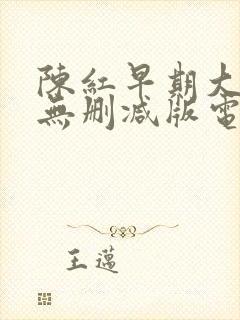 陳紅早期大
無刪减版電
王邁